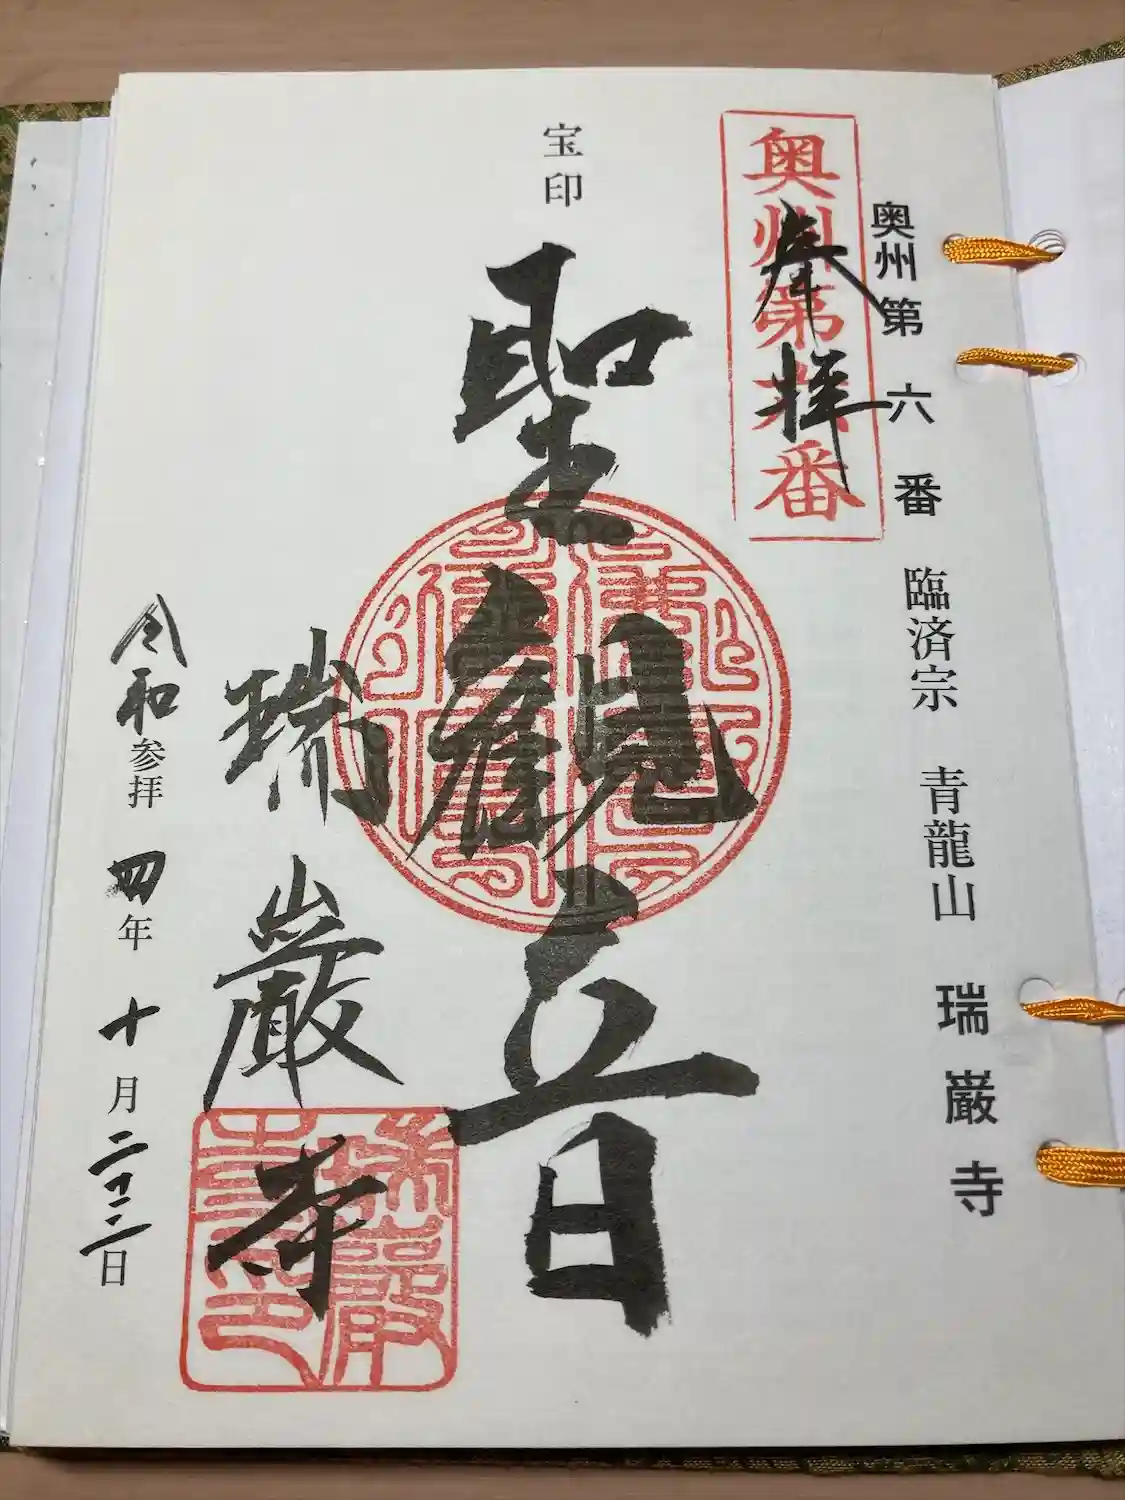 奥州第六番 臨済宗 青龍山 瑞巌寺
奥州第六番
奉拝
宝印
聖観音
瑞巌寺
瑞巌寺印
令和参拝四年十月二十二日